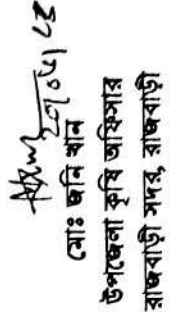 ২৭/০৫/২৪
মোঃ জনি খান
উপজেলা কৃষি অফিসার
রাজবাড়ী সদর, রাজবাড়ী